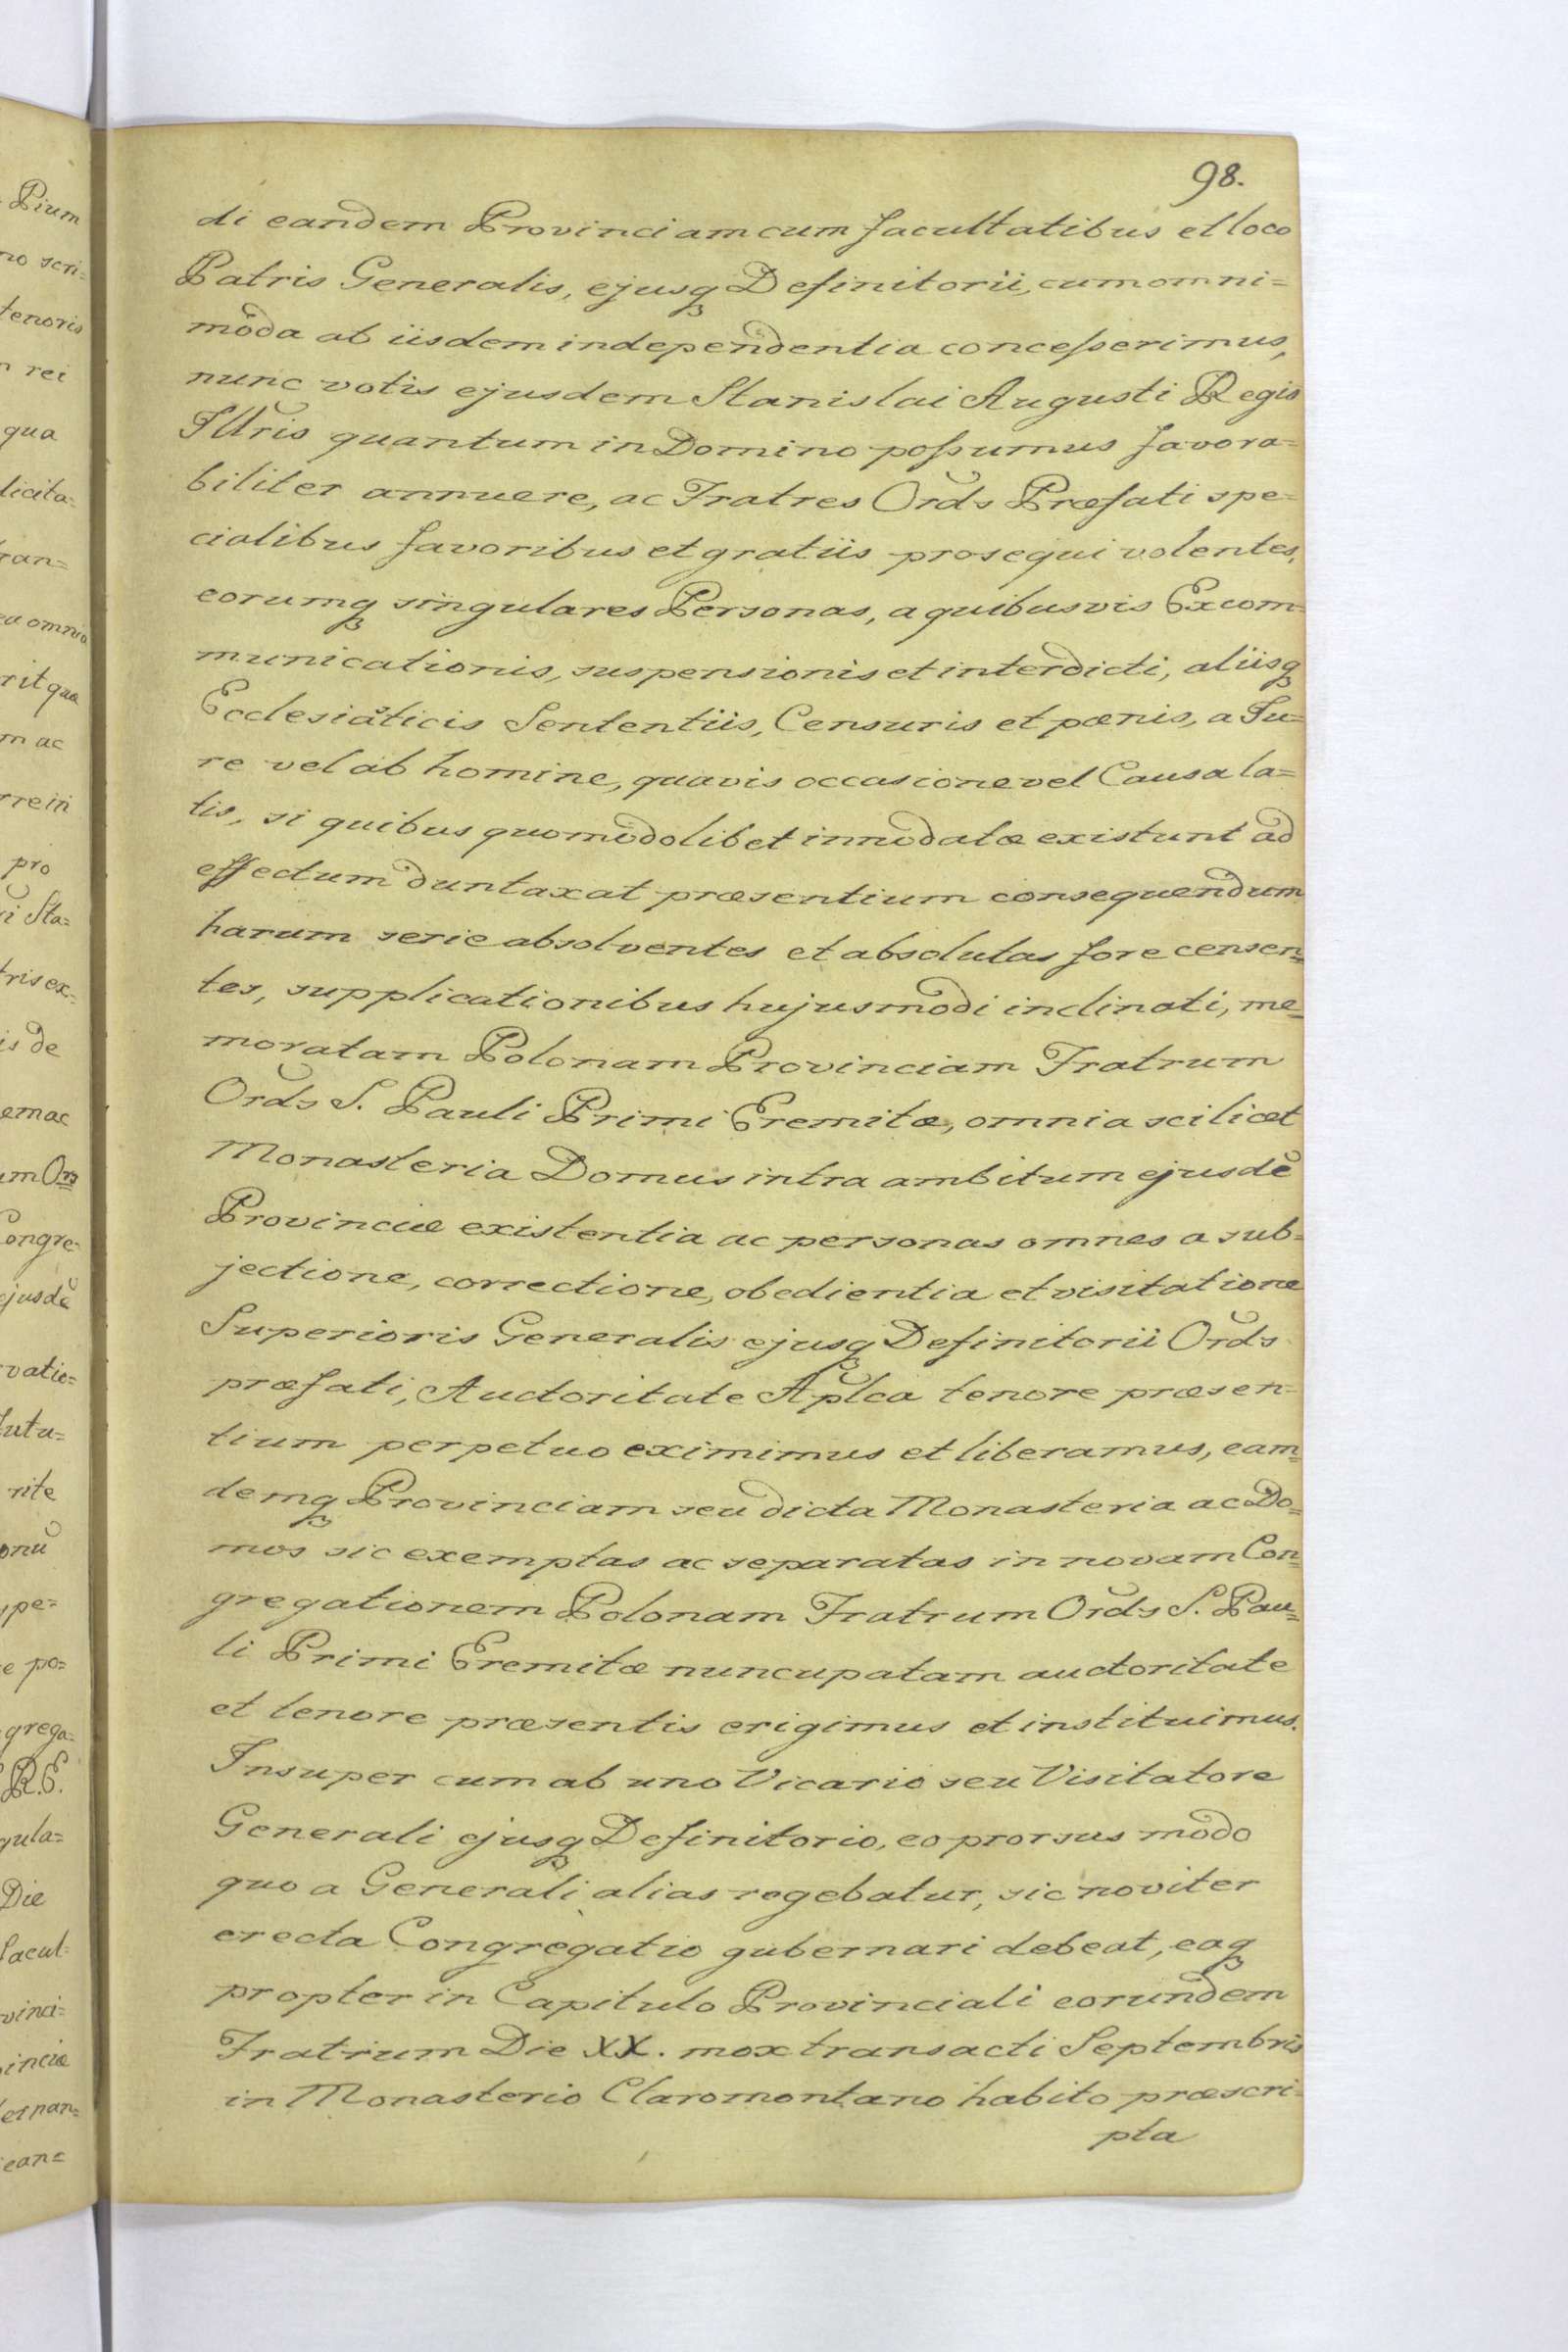 98.
di eandem Provinciam cum facultatibus et loco
Patris Generalis, ejusq Definitorii, cum omni=
moda ab iisdem independentia concesserimus,
nunc votis ejusdem Stanislai Augusti Regis
Illris quantum in Domino possumus favora=
biliter annuere, ac Fratres Ords Præfati spe=
cialibus favoribus et gratiis prosequi volentes,
eorumq singulares Personas, a quibusvis Excom=
municationis, suspensionis et interdicti, aliisq
Ecclesiasticis Sententiis, Censuris et pœnis, a Ju=
re vel ab homine, quavis occasione vel Causa la=
tis, si quibus quomodolibet innodatæ existunt ad
effectum duntaxat præsentium consequendum
harum serie absolventes et absolutas fore censen=
tes, supplicationibus hujusmodi inclinati, me=
moratam Polonam Provinciam Fratrum
Ords S. Pauli Primi Eremitæ, omnia scilicet
Monasteria Domus intra ambitum ejusdē
Provinciæ existentia ac personas omnes a sub=
jectione, correctione, obedientia et visitatione
Superioris Generalis ejusq Definitorii Ords
præfati, Auctoritate Aplca tenore præsen=
tium perpetuo eximimus et liberamus, eam=
demq Provinciam seu dicta Monasteria ac Do=
mos sic exemptas ac separatas in novam Con=
gregationem Polonam Fratrum Ords S. Pau=
li Primi Eremitæ nuncupatam auctoritate
et tenore præsentis erigimus et instituimus.
Insuper cum ab uno Vicario seu Visitatore
Generali ejusq Definitorio, eo prorsus modo
quo a Generali alias regebatur, sic noviter
erecta Congregatio gubernari debeat, eaq
propter in Capitulo Provinciali eorundem
Fratrum Die XX. mox transacti Septembris
in Monasterio Claromontano habito præscri=
pta